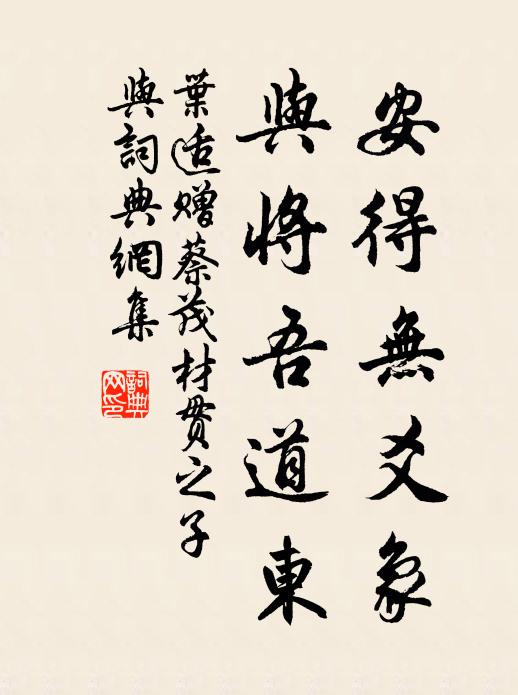 安得無爻象
與將吾道東
葉适赠蔡茂材貫之子
與詞典網集
詞典
网印